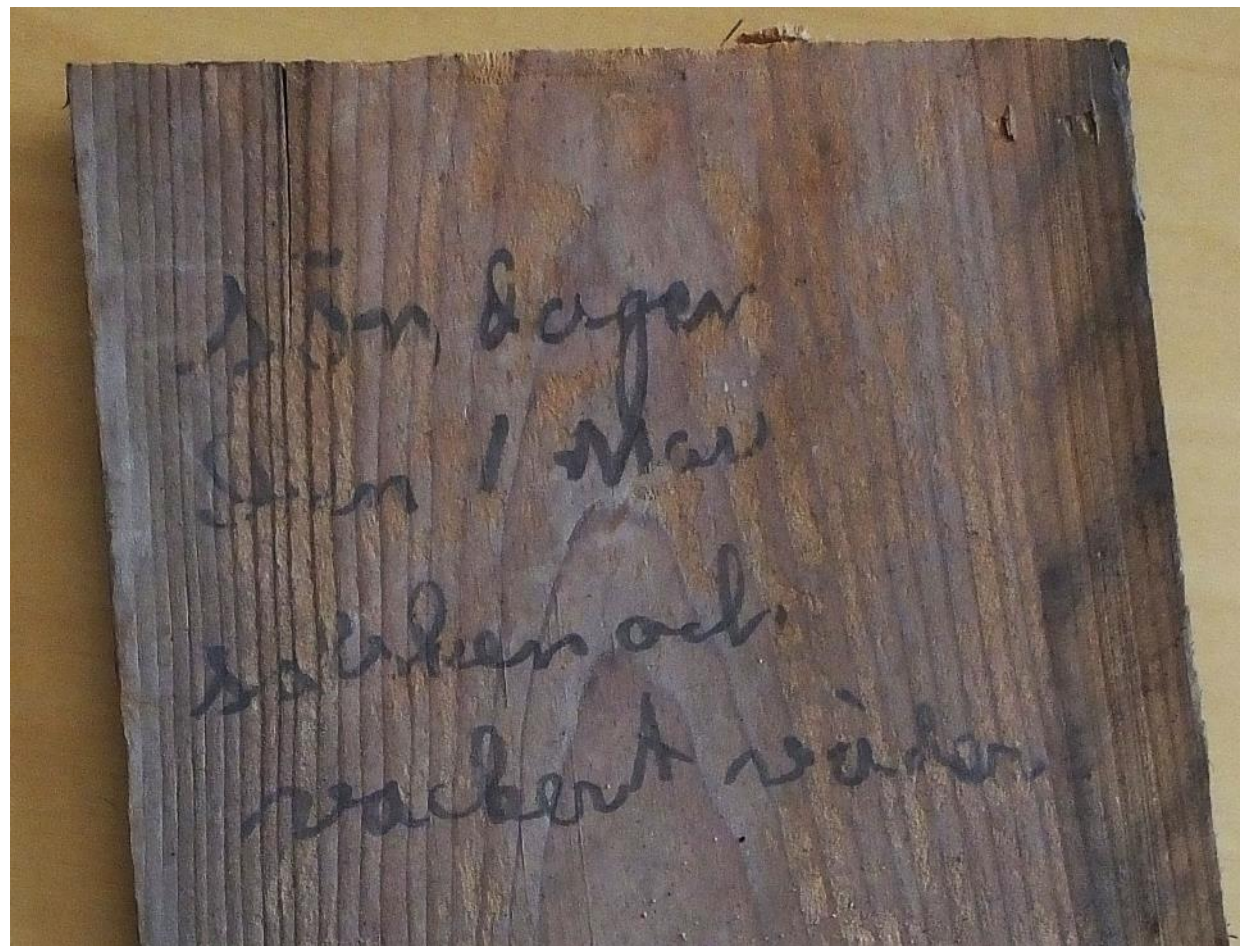 sön dagen
den 1 Mai
säcken och
vackert väder